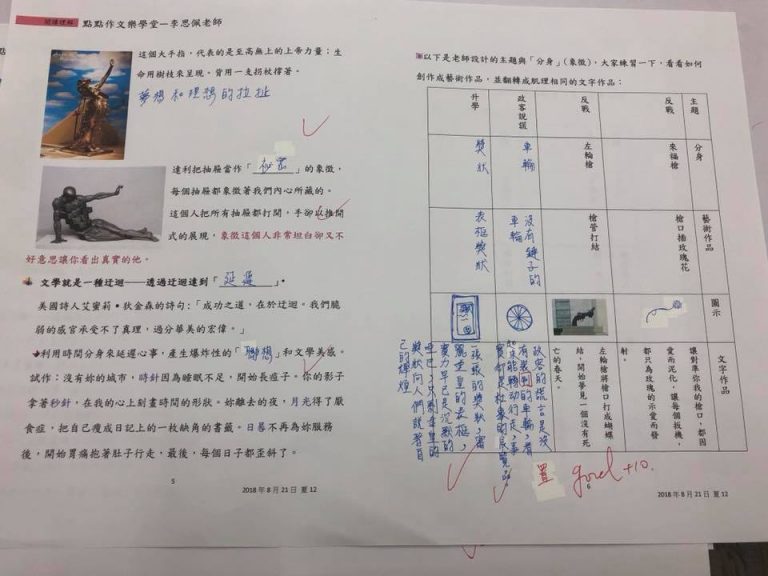 閱讀理解 點點作文樂學堂—李思佩老師
這個大手指，代表的是至高無上的上帝力量；生
命用樹枝來呈現。背用一支拐杖撐著。
夢想和理想的拉扯
達利把抽屜當作「祕密」的象徵，
每個抽屜都象徵著我們內心所藏的。
這個人把所有抽屜都打開，手卻以推開
式的展現，象徵這個人非常坦白卻又不
好意思讓你看出真實的他。
文學就是一種迂迴——透過迂迴達到「延遲」。
美國詩人艾蜜莉·狄金森的詩句:「成功之道，在於迂迴。我們脆
弱的感官承受不了真理，過分華美的宏偉。」
利用時間分身來延遲心事，產生爆炸性的「聯想」和文學美感。
試作：沒有妳的城市，時針因為睡眠不足，開始長痘子。你的影子
拿著秒針，在我的心上刻畫時間的形狀。妳離去的夜，月光得了厭
食症，把自己瘦成日記上的一枚缺角的書籤。日暮不再為妳服務
後，開始胃痛抱著肚子行走，最後，每個日子都歪斜了。
5
2018年8月21日 夏12
以下是老師設計的主題與「分身」(象徵)，大家練習一下，看看如何
創作成藝術作品，並翻轉成肌理相同的文字作品：
主題
分身
藝術作品
圖示
文字作品
反戰
來福槍
槍口插玫瑰花
讓對準你我的槍口，都因
愛而泥化，讓每個扳機，
都只為玫瑰的示愛而發
射。
反戰
左輪槍
槍管打結
左輪槍將槍口打成蝴蝶
結，開始夢見一個沒有死
亡的春天。
政客說謊
車輪
沒有鏈子的
車輪
政客的謊言是沒
有鏈的車輪，看
如來能轉動行走，事
實都是在原的展覽品
升學
獎狀
表框獎狀
一張張的獎狀，富
麗堂皇的表框，
實力早已是沉默的
啞巴，只剩
獎狀向人們說著自
己的輝煌
置
good +10.
6
2018年8月21日 夏12